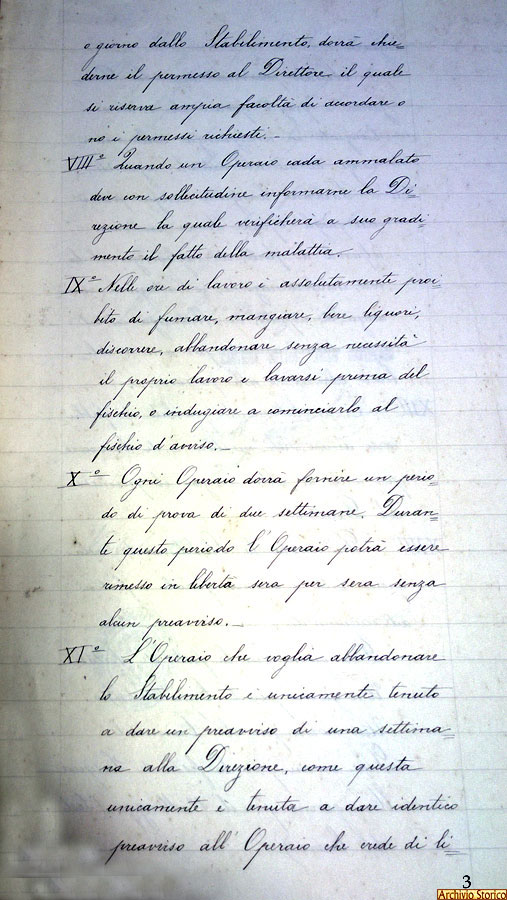 o giorno dallo Stabilimento, dovrà chie=
derne il permesso al Direttore il quale
si riserva ampia facoltà di accordare o
nò i permessi richiesti.—
VIII° Quando un Operaio cada ammalato
deve con sollecitudine informarne la Di=
rezione la quale verificherà a suo gradi=
mento il fatto della malattia.
IX° Nelle ore di lavoro è assolutamente proi=
bito di fumare, mangiare, bere liquori,
discorrere, abbandonare senza necessità
il proprio lavoro e lavarsi prima del
fischio, o indugiare a cominciarlo al
fischio d'avviso.—
X° Ogni Operaio dovrà fornire un perio=
do di prova di due settimane. Duran=
te questo periodo l'Operaio potrà essere
rimesso in libertà sera per sera senza
alcun preavviso.—
XI° L'Operaio che voglia abbandonare
lo Stabilimento è unicamente tenuto
a dare un preavviso di una settima=
na alla Direzione, come questa
unicamente è tenuta a dare identico
preavviso all'Operaio che crede di li=
3
Archivio Storico